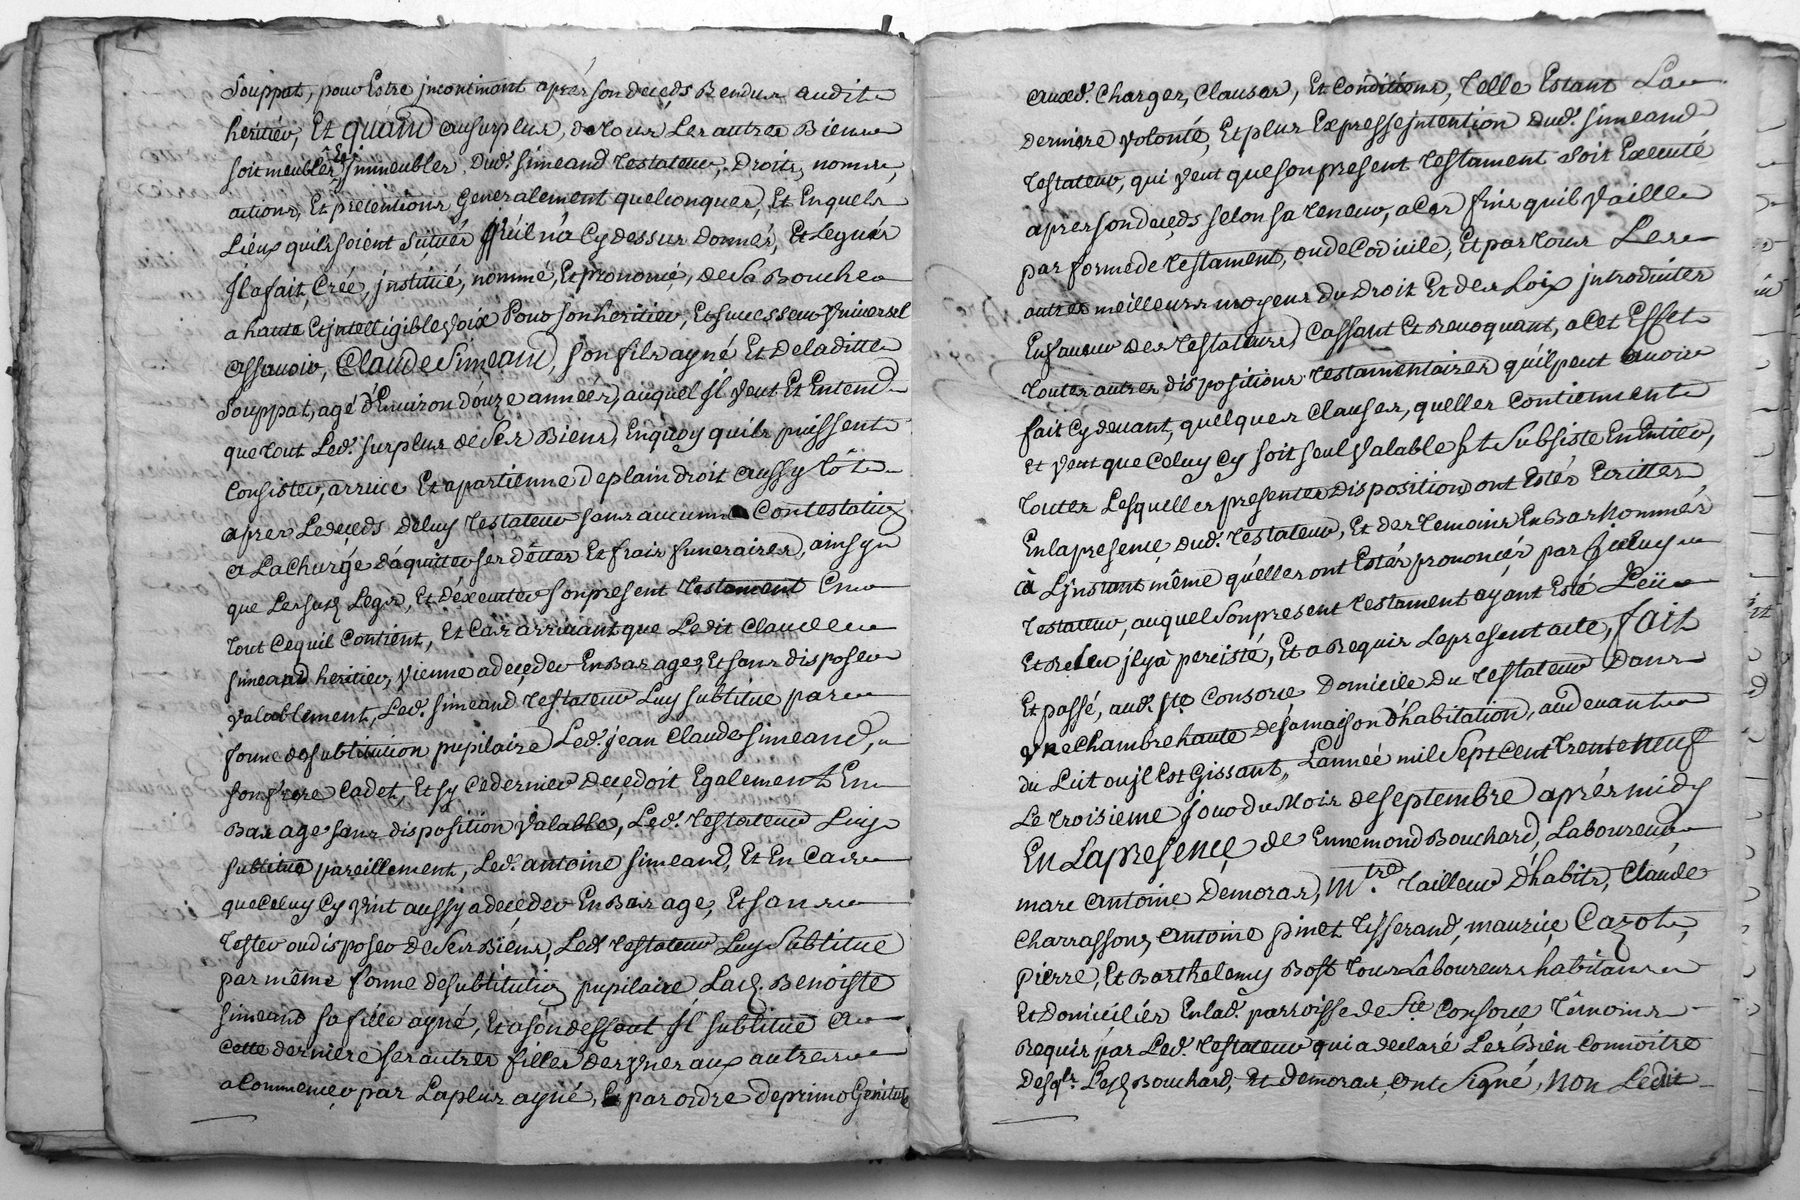 Souppat, pour Estre jncontinant aprés son decéds Rendus audit
heritier, Et quand au surplus, de tous Les autres Biens
soit meubles Et jmmeubles Dud. simeand Testateur, Droits, noms,
actions, Et pretentions Generalement quelconques, Et En quels
Lieux quils soient situés qu'il n'a Cy dessus Donnés, Et Legués
Jl a fait, Créé, jnstitué, nommé, Et prononcé, de Sa Bouche
a haute Et jntelligible Voix Pour son heritier, Et successeur Vniversel
assavoir, Claude Simeand, son fils ayné Et De laditte
Souppat, agé d'Environ douze années, auquel Jl Veut Et Entend
que tout Led. surplus de Ses Biens, En quoy quils puissent
Consister, arrive Et apartienne de plain droit aussy tôt
apres Le deçeds de luy Testateur sans aucune Contestation
a La Charge d'aquitter ses dettes Et frais funeraires, ainsy
que Les susd. Legs, Et D'éxecuter son present Testament En
tout Ce quil Contient, Et Cas arrivant que Ledit Claude
simeand heritier, Vienne a deçeder En Bas age, Et sans disposer
Valablement, Led. simeand Testateur Luy subtitue par
forme de subtitution pupilaire Led. jean Claude simeand,
son frere Cadet, Et sy Ce dernier deçedoit Egalement En
Bas age sans disposition Valable, Led. Testateur Luy
subtitue pareillement, Led. antoine simeand, Et En Cas
que Celuy Cy Vint aussy a deçeder En Bas age, Et sans
tester ou disposer de Ses Biens, Led. Testateur Luy Subtitue
par même forme de subtitution pupilaire Lad. Benoiste
simeand sa fille ayné, Et a son deffaut Jl subtitue a
Cette derniere ses autres filles des Vnes aux autres
a Commencer par La plus ayné, Et par ordre de primo Geniture
auxd. Charges, Clauses, Et Conditions, Telle Estant La
derniere Volonté, Et plus Expresse jntention dud. simeand
Testateur, qui Veut que son present Testament soit Executé
apres son deçeds selon sa Teneur, a Ces fins quil Vaille
par forme de Testament, ou de Codicile, Et par tous Les
autres meilleurs moyens du Droit Et des Loix jntroduites
En faveur des Testateurs, Cassant Et Revoquant, a Cet Effet
toutes autres dispositions testamentaires qu'il peut avoir
fait Cy devant, quelques Clauses, quelles Contiennent
Et Veut que Celuy Cy soit seul Valable Et Subsiste En Entier,
toutes Lesquelles presentes Dispositions ont Estés Ecrittes
En la presençe dud. Testateur, Et des Temoins En Bas Nommés
à L'jnstant même qu'elles ont Estés prononcés par Jceluy
Testateur, auquel Son present testament ayant Esté Leü
Et Releu jl y a percisté, Et a Requis Le present acte, fait
Et passé, aud. Ste. Consorce Domicile du Testateur Dans
Vne Chambre haute de sa maison d'habitation, au devant
du Lict ou jl Est Gissant, L'année mil Sept Cent trente neuf
Le troisieme jour du Mois de septembre aprés midy
En La presençe de Ennemond Bouchard, Laboureur
marc Antoine Demoras, Mtre. Tailleur d'habits, Claude
Charrasson, antoine pinet Tisserand, maurice Cazot,
Pierre, Et Barthelemy Bost tous Laboureurs habitans
Et Domiciliés En lad. parroisse de Ste. Consorce Témoins
Requis par Led. Testateur qui a declaré Les Bien Connoitre
Desqls. Lesd. Bouchard, Et Demoras, ont Signé, Non Ledit